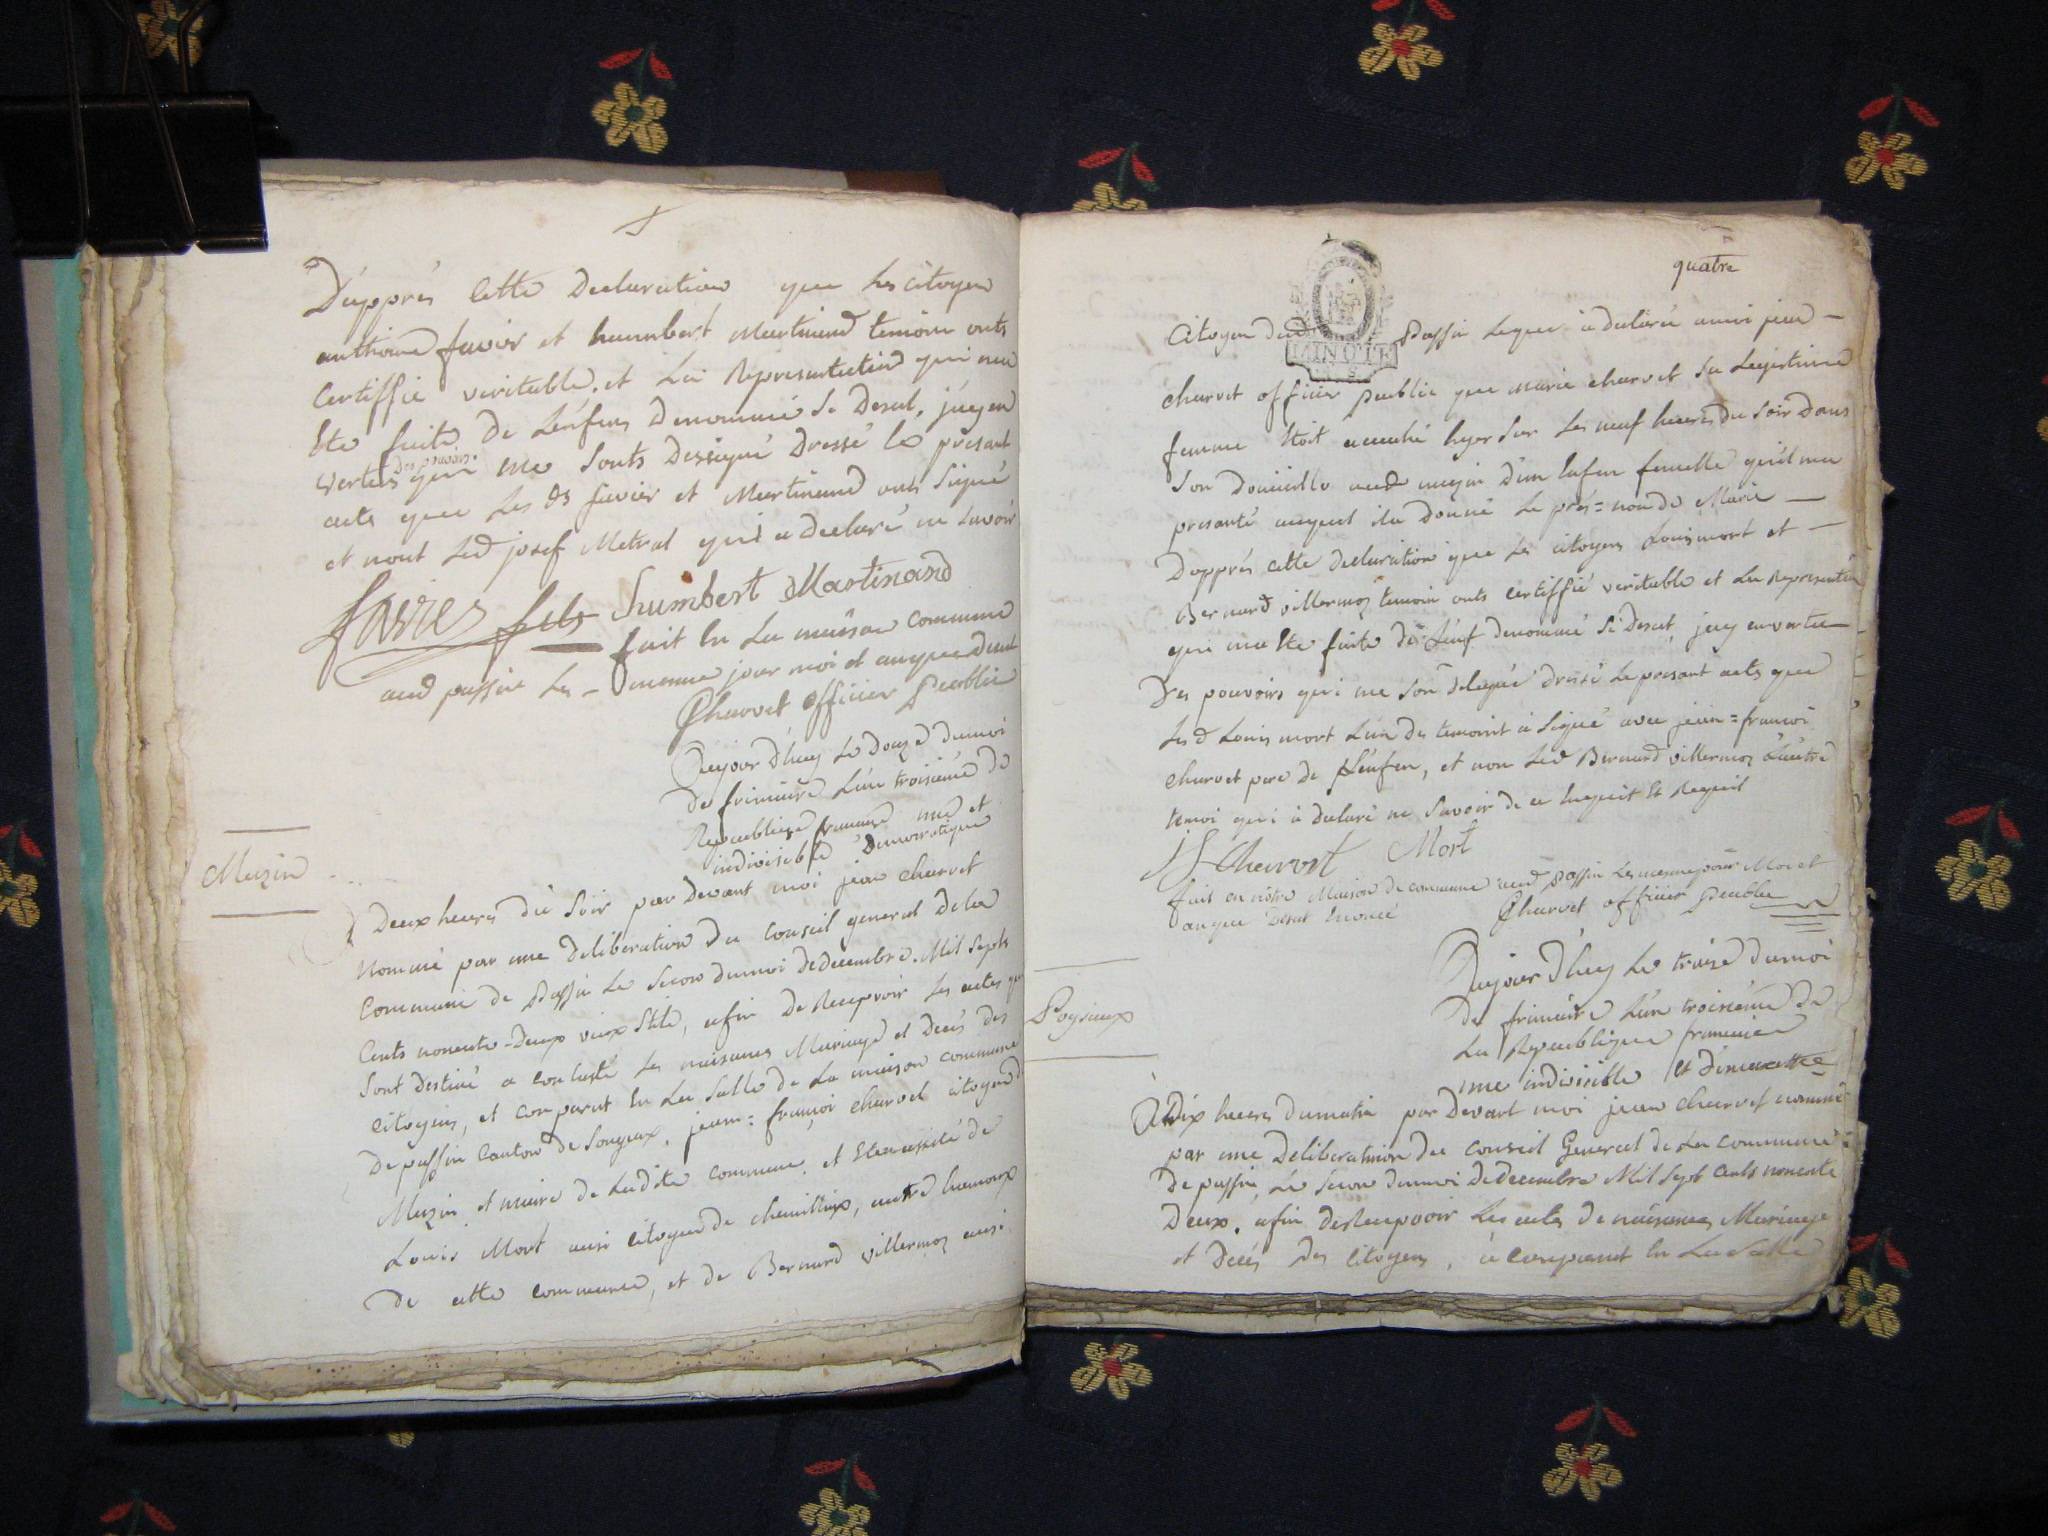 D'apprés Cette Declaration que Les citoyen
anthoine favier et humbert Martinand temoin onts
Certiffié veritable. et La Representation qui ma
Ete faite De L'énfans Denommé Si Desut, j'ay en
vertus des pouvoirs qui me sonts Dessigué Dressé Le présant
acte que Les ds favier et Martinand onts Signé
et nont Led josef Metral qui a declaré ne savoir
favier fils humbert Martinand
fait En La maison Commune
aud passin Les - meme jour moi et anque dsut
Charvet officier Public
Aujour D'huy Le Douze dumoi
De frimaire L'an troisième De
Republique francaise une et
indivisible Democratique
Muzin
à Deux heures du Soir par Devant moi jean charvet
Nommé par une Deliberation Du Conseil general De la
Commune de Passin Le Second dumoi De decembre. Mil Septs
Cents nonente-Deux vieux Stile, afin De Recepvoir Les actes qui
Sont Destiné a Contasté Les naisances Mariage et Decés Des
Citoyens, et Comparut En La Salle De La maison commune
De passin Canton de Songieux, jean=françoi charvet citoyen d
Muzin et maire de Ladite commune. et Etant assisté de
Louis Mort ausi citoyen de chemillieux, autre hameaux
De cette commune, et de Bernard villermoz ausi
quatre
MINUTE
Citoyen dud Passin Lequel à declaré a moi jean
charvet officier public que marie charvet Sa Legitime
femme Etoit acouché hyer Sur Les neuf heures du Soir Dans
Son Domicille aud muzin D'un Enfan femelle qu'il ma
presanté auquel il a Donné Le prés=nom de Marie
D'apprés cette declaration que Les citoyens Louis mort et
Bernard villermoz temoin onts certiffié veritable et La Representation
qui ma Ete faite de L'enf denommé Si Desut, j'ay en vertu
Des pouvoirs qui me Son delegué dréssé Le presant acte que
Les d Louis mort L'un des temoint à Signé avec jean=francoi
charvet pere de L'enfan, et non Led Bernard villermoz L'autre
temoi qui à declaré ne Savoir de ce Enquit Et Requit
jf Charvet Mort
fait en nôtre Maison de commune aud passin Les meme jour Moi et
anque Desut Enoncé Charvet officier Public
Aujour D'huy Le traize dumoi
De frimaire L'an troisième De
La Republique francaise
une indivisible Et Democratte
Poysieux
à dix heures dumatin par Devant moi jean charvet nommé
par une Deliberation du Conseil General de La Commune
De passin, Le Secon dumoi De decembre Mil Sept Cents nonente
Deux, afin De Recepvoir Les actes de naisances Mariage
et Decés Des Citoyens, à Comparut En La Salle